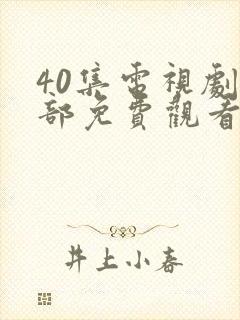 40集電視劇
部免費觀看
井上小春